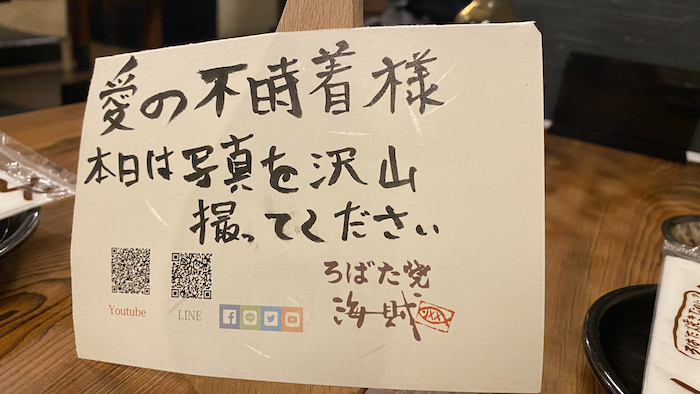 愛の不時着様
本日は写真を沢山
撮ってください
Youtube
LINE
ろばた焼
海賊